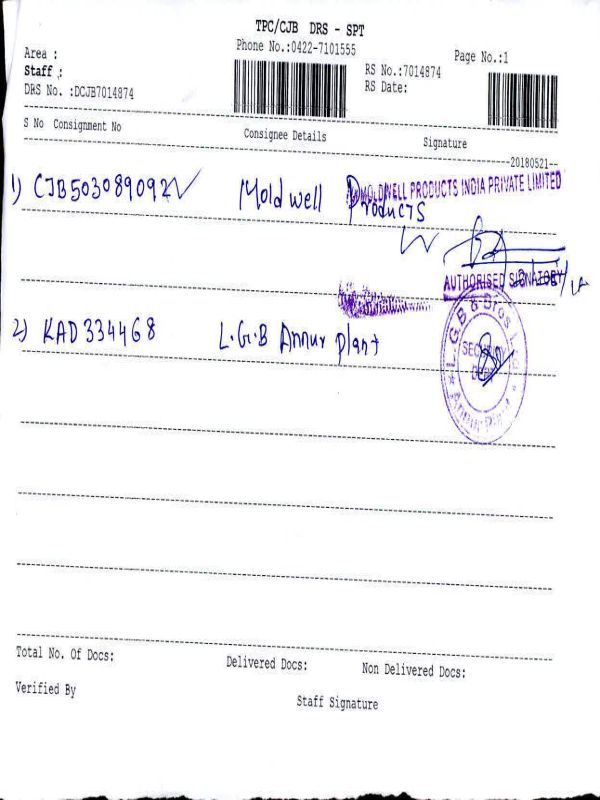 TPC/CJB DRS - SPT
Phone No.:0422-7101555
Area :
Page No.:1
Staff :
RS No.:7014874
DRS No. :DCJB7014874
RS Date:
S No Consignment No Consignee Details Signature
20180521
1) CJB503089092 Moldwell Products
MOLDWELL PRODUCTS INDIA PRIVATE LIMITED
AUTHORISED SIGNATORY
2) KAD334468 L.G.B Annur plant
L.G.B & Bros Ltd
SECURITY
DEPT
Annur Plant
Total No. Of Docs: Delivered Docs: Non Delivered Docs:
Verified By Staff Signature